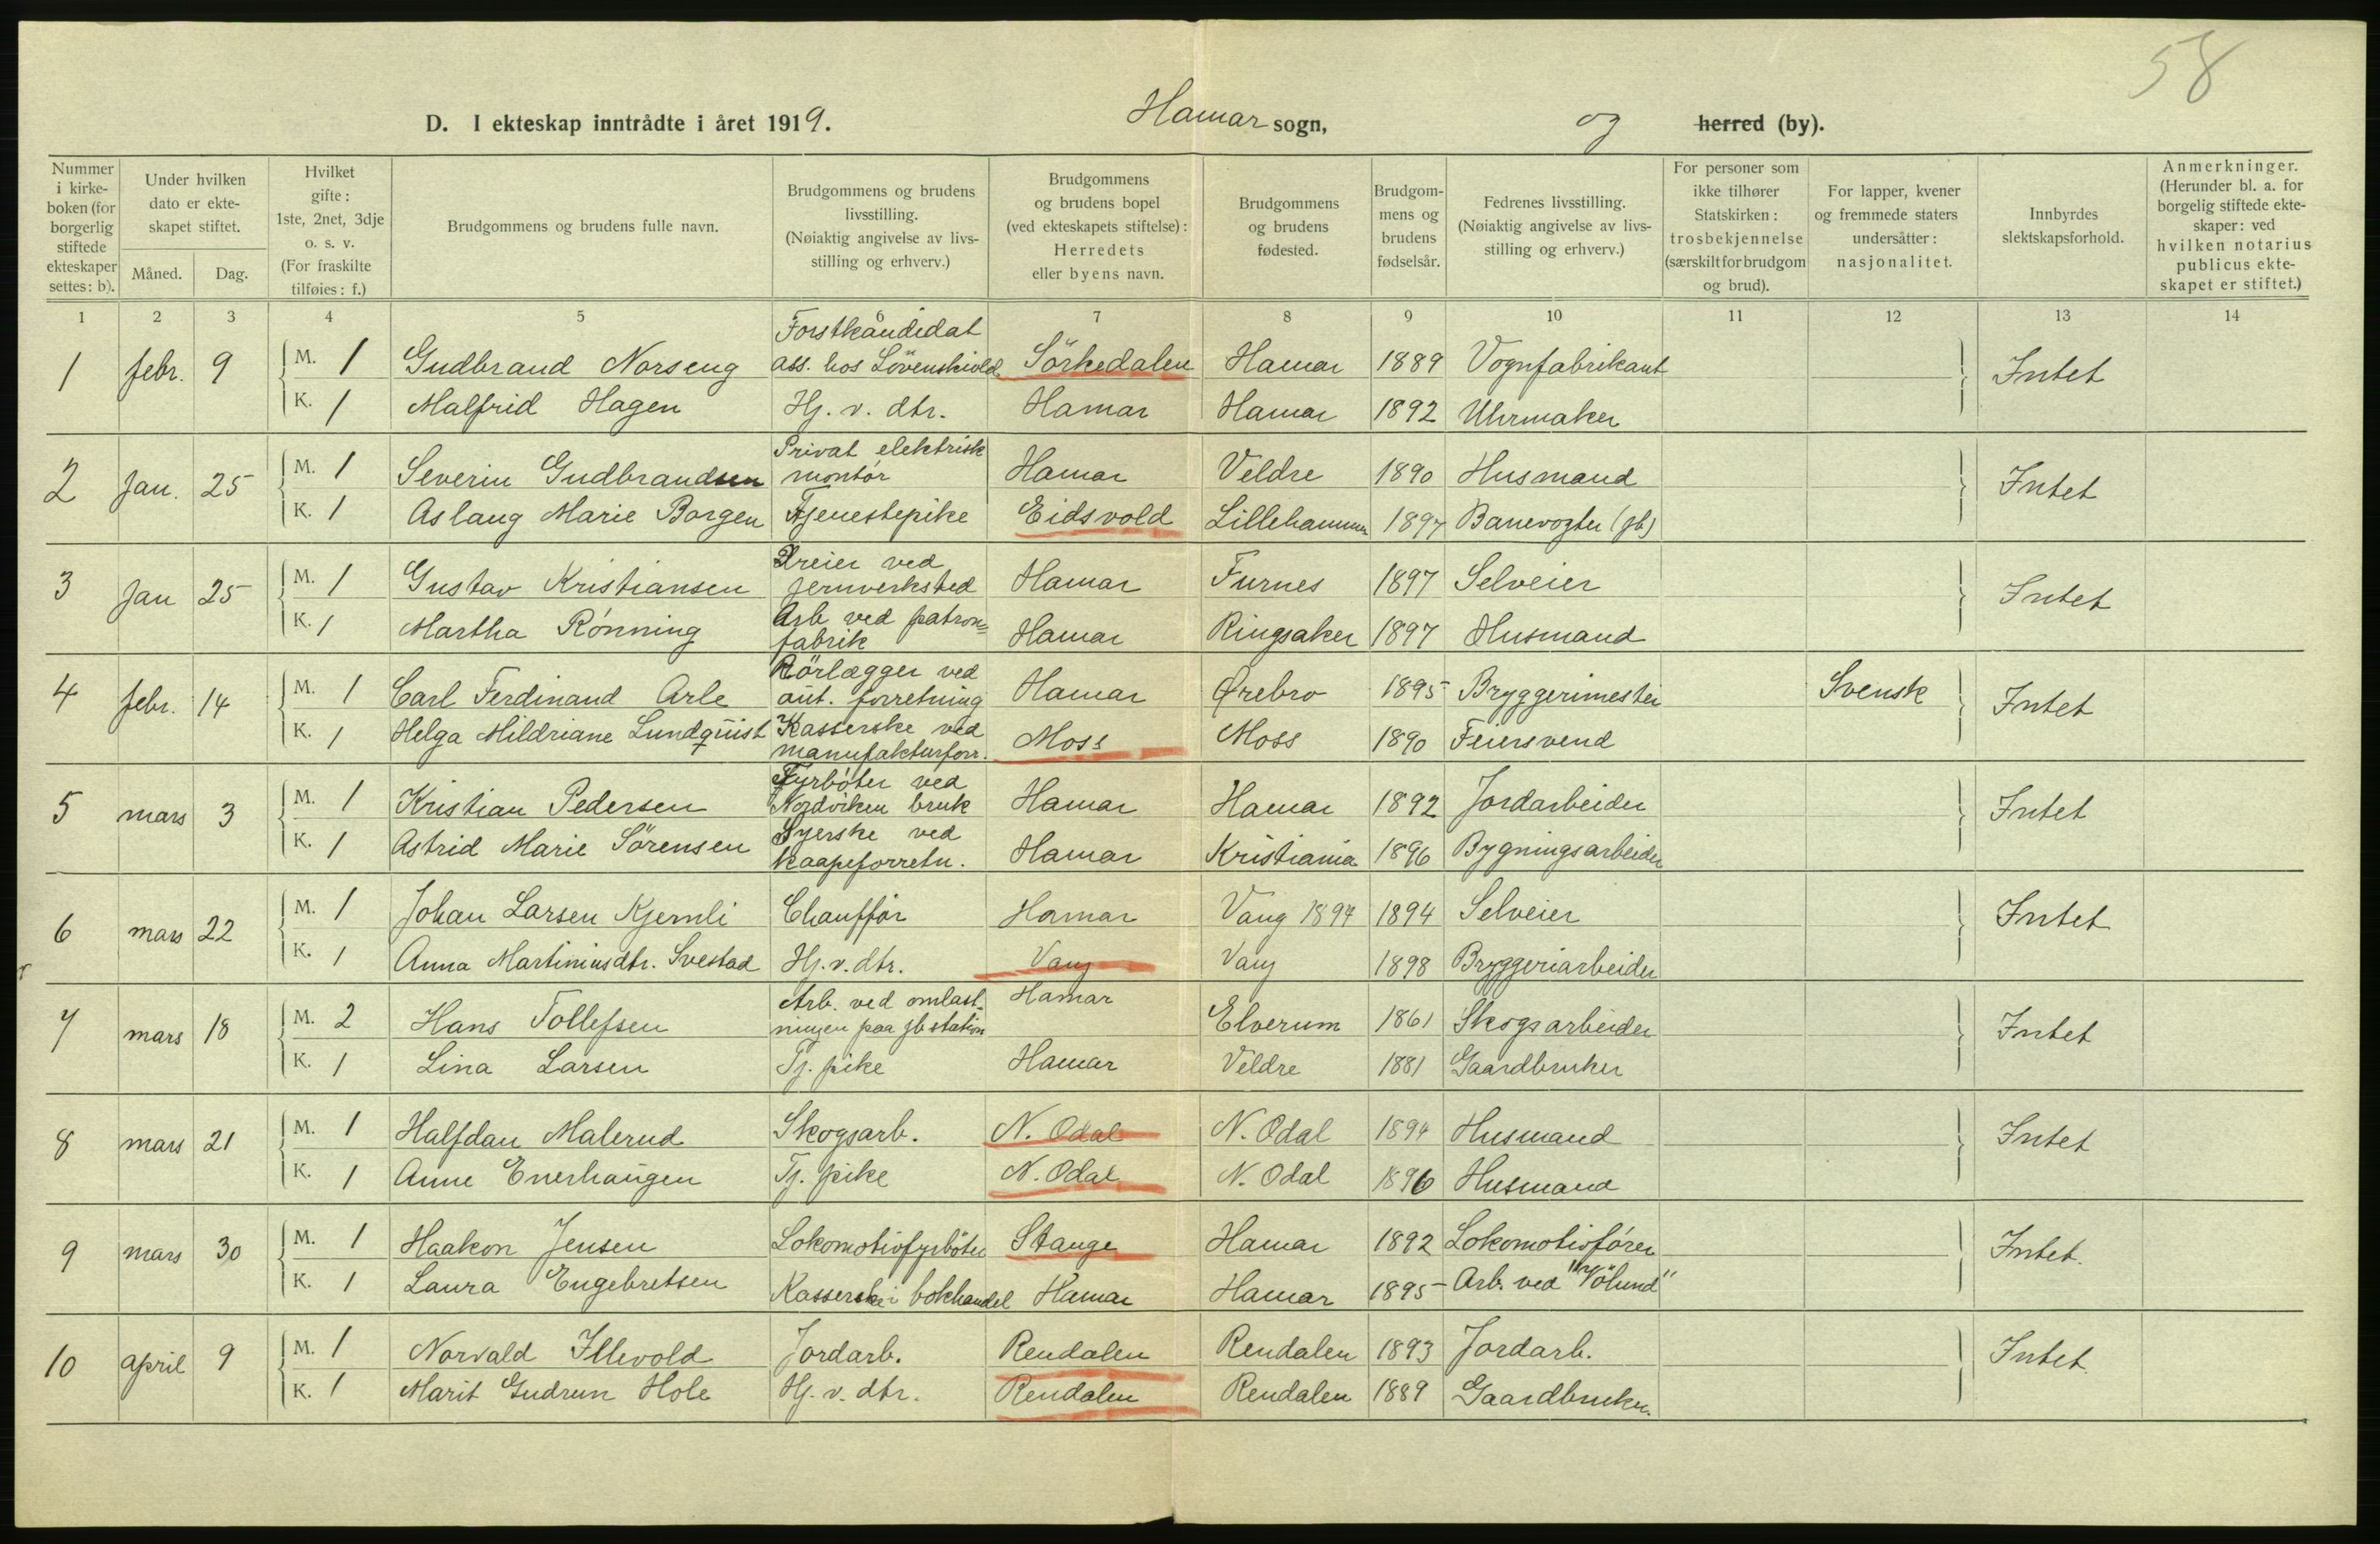 58
D. I ekteskap inntrådte i året 1919. Hamar sogn, og herred (by).
Nummer i kirke-boken (for borgerlig stiftede ekteskaper settes: b).
Under hvilken dato er ekte-skapet stiftet.
Måned. Dag.
Hvilket gifte: 1ste, 2net, 3dje o. s. v. (For fraskilte tilføies: f.)
Brudgommens og brudens fulle navn.
Brudgommens og brudens livsstilling. (Nøiaktig angivelse av livs-stilling og erhverv.)
Brudgommens og brudens bopel (ved ekteskapets stiftelse): Herredets eller byens navn.
Brudgommens og brudens fødested.
Brudgom-mens og brudens fødselsår.
Fedrenes livsstilling. (Nøiaktig angivelse av livs-stilling og erhverv.)
For personer som ikke tilhører Statskirken: trosbekjennelse (særskilt for brudgom og brud).
For lapper, kvener og fremmede staters undersåtter: nasjonalitet.
Innbyrdes slektskapsforhold.
Anmerkninger. (Herunder bl. a. for borgelig stiftede ekte-skaper: ved hvilken notarius publicus ekte-skapet er stiftet.)
1 2 3 4 5 6 7 8 9 10 11 12 13 14
1 febr. 9 M. 1 Gudbrand Norseng Forstkandidat ass. hos Lövenskiold Sörkedalen Hamar 1889 Vognfabrikant Intet
K. 1 Malfrid Hagen Hj. v. dtr. Hamar Hamar 1892 Uhrmaker
2 Jan. 25 M. 1 Severin Gudbrandsen Privat elektrisk montör Hamar Veldre 1890 Husmand Intet
K. 1 Aslaug Marie Borgen Tjenestepike Eidsvold Lillehammer 1897 Banevogter (jb)
3 Jan 25 M. 1 Gustav Kristiansen Dreier ved jernverksted Hamar Furnes 1897 Selveier Intet
K. 1 Martha Rönning Arb ved patron=fabrik Hamar Ringsaker 1897 Husmand
4 febr. 14 M. 1 Carl Ferdinand Arle Rörlægger ved aut. forretning Hamar Ørebro 1895 Bryggerimester Svensk Intet
K. 1 Helga Mildriane Lundquist Kasserske ved manufakturforr. Moss Moss 1890 Feiersvend
5 mars 3 M. 1 Kristian Pedersen Fyrböter ved Nordviken bruk Hamar Hamar 1892 Jordarbeider Intet
K. 1 Astrid Marie Sörensen Syerske ved kaapeforretn. Hamar Kristiania 1896 Bygningsarbeider
6 mars 22 M. 1 Johan Larsen Kjernli Chaufför Hamar Vang 1894 1894 Selveier Intet
K. 1 Anna Martiniusdtr. Svestad Hj. v. dtr. Vang Vang 1898 Bryggeriarbeider
7 mars 18 M. 2 Hans Tollefsen Arb. ved omlast-ningen paa jb station Hamar Elverum 1861 Skogsarbeider Intet
K. 1 Lina Larsen Tj. pike Hamar Veldre 1881 Gaardbruker
8 mars 21 M. 1 Halfdan Malerud Skogsarb. N. Odal N. Odal 1894 Husmand Intet
K. 1 Anne Enerhaugen Tj. pike N. Odal N. Odal 1896 Husmand
9 mars 30 M. 1 Haakon Jensen Lokomotivfyrböter Stange Hamar 1892 Lokomotivförer Intet.
K. 1 Laura Engebretsen Kasserske i bokhandel Hamar Hamar 1895 Arb. ved "Völund"
10 april 9 M. 1 Norvald Illevold Jordarb. Rendalen Rendalen 1893 Jordarb. Intet.
K. 1 Marit Gudrun Hole Hj. v. dtr. Rendalen Rendalen 1889 Gaardbruker.